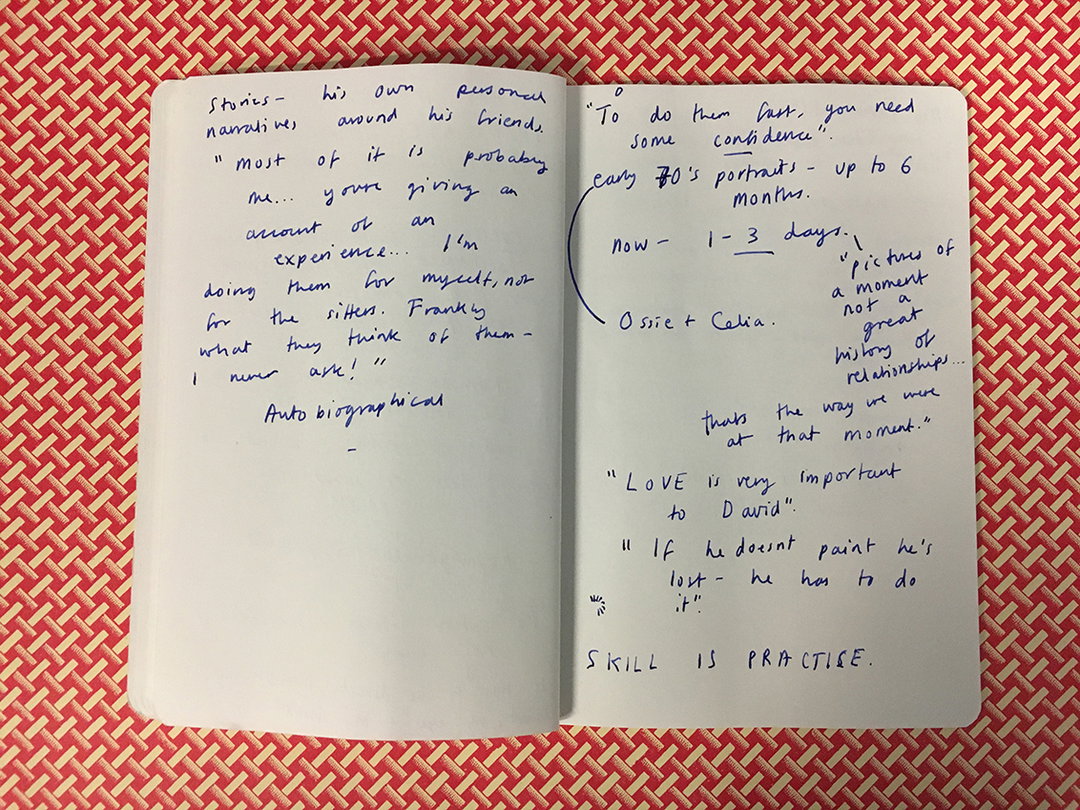 Stories - his own personal
narratives around his friends.
"most of it is probably
me... youre giving an
account of an
experience... I'm
doing them for myself, not
for the sitters. Frankly
what they think of them -
I never ask!"
Autobiographical
-
"To do them fast, you need
some confidence".
early 70's portraits - up to 6
months.
now - 1 - 3 days.
"pictures of
a moment
not a
great
history of
relationships...
thats the way we were
at that moment."
Ossie + Celia.
"LOVE is very important
to David".
"If he doesnt paint he's
lost - he has to do
it".
SKILL IS PRACTISE.